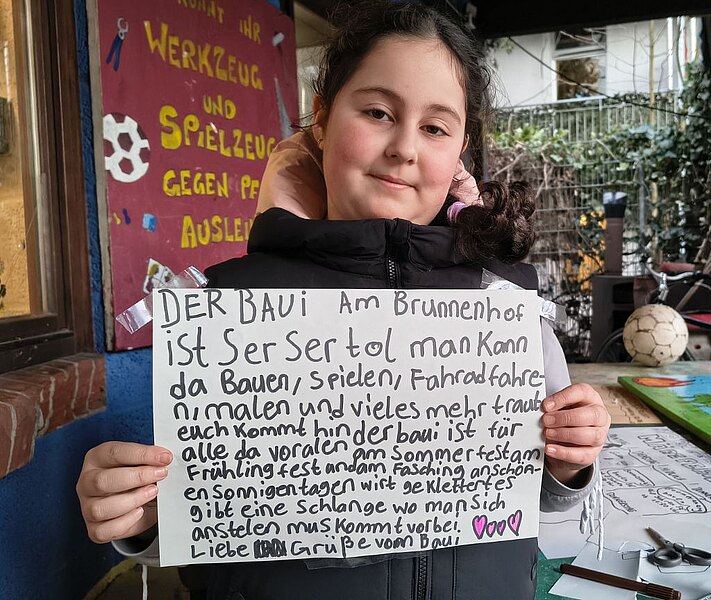 KÖNNT IHR
WERKZEUG
UND
SPIELZEUG
GEGEN PF
AUSLEI
DER BAUi Am Brunnenhof
ist Ser Ser tol man Kann
da Bauen, Spielen, Fahradfahre-
n, malen und vieles mehr traut
euch kommt hin der baui ist für
alle da voralem am Sommerfest am
Frühling fest und am Fasching anschön-
en Sonnigen tagen wirt geklettert es
gibt eine Schlange wo man sich
anstelen mus Kommt vorbei.
Liebe Grüße vom Baui